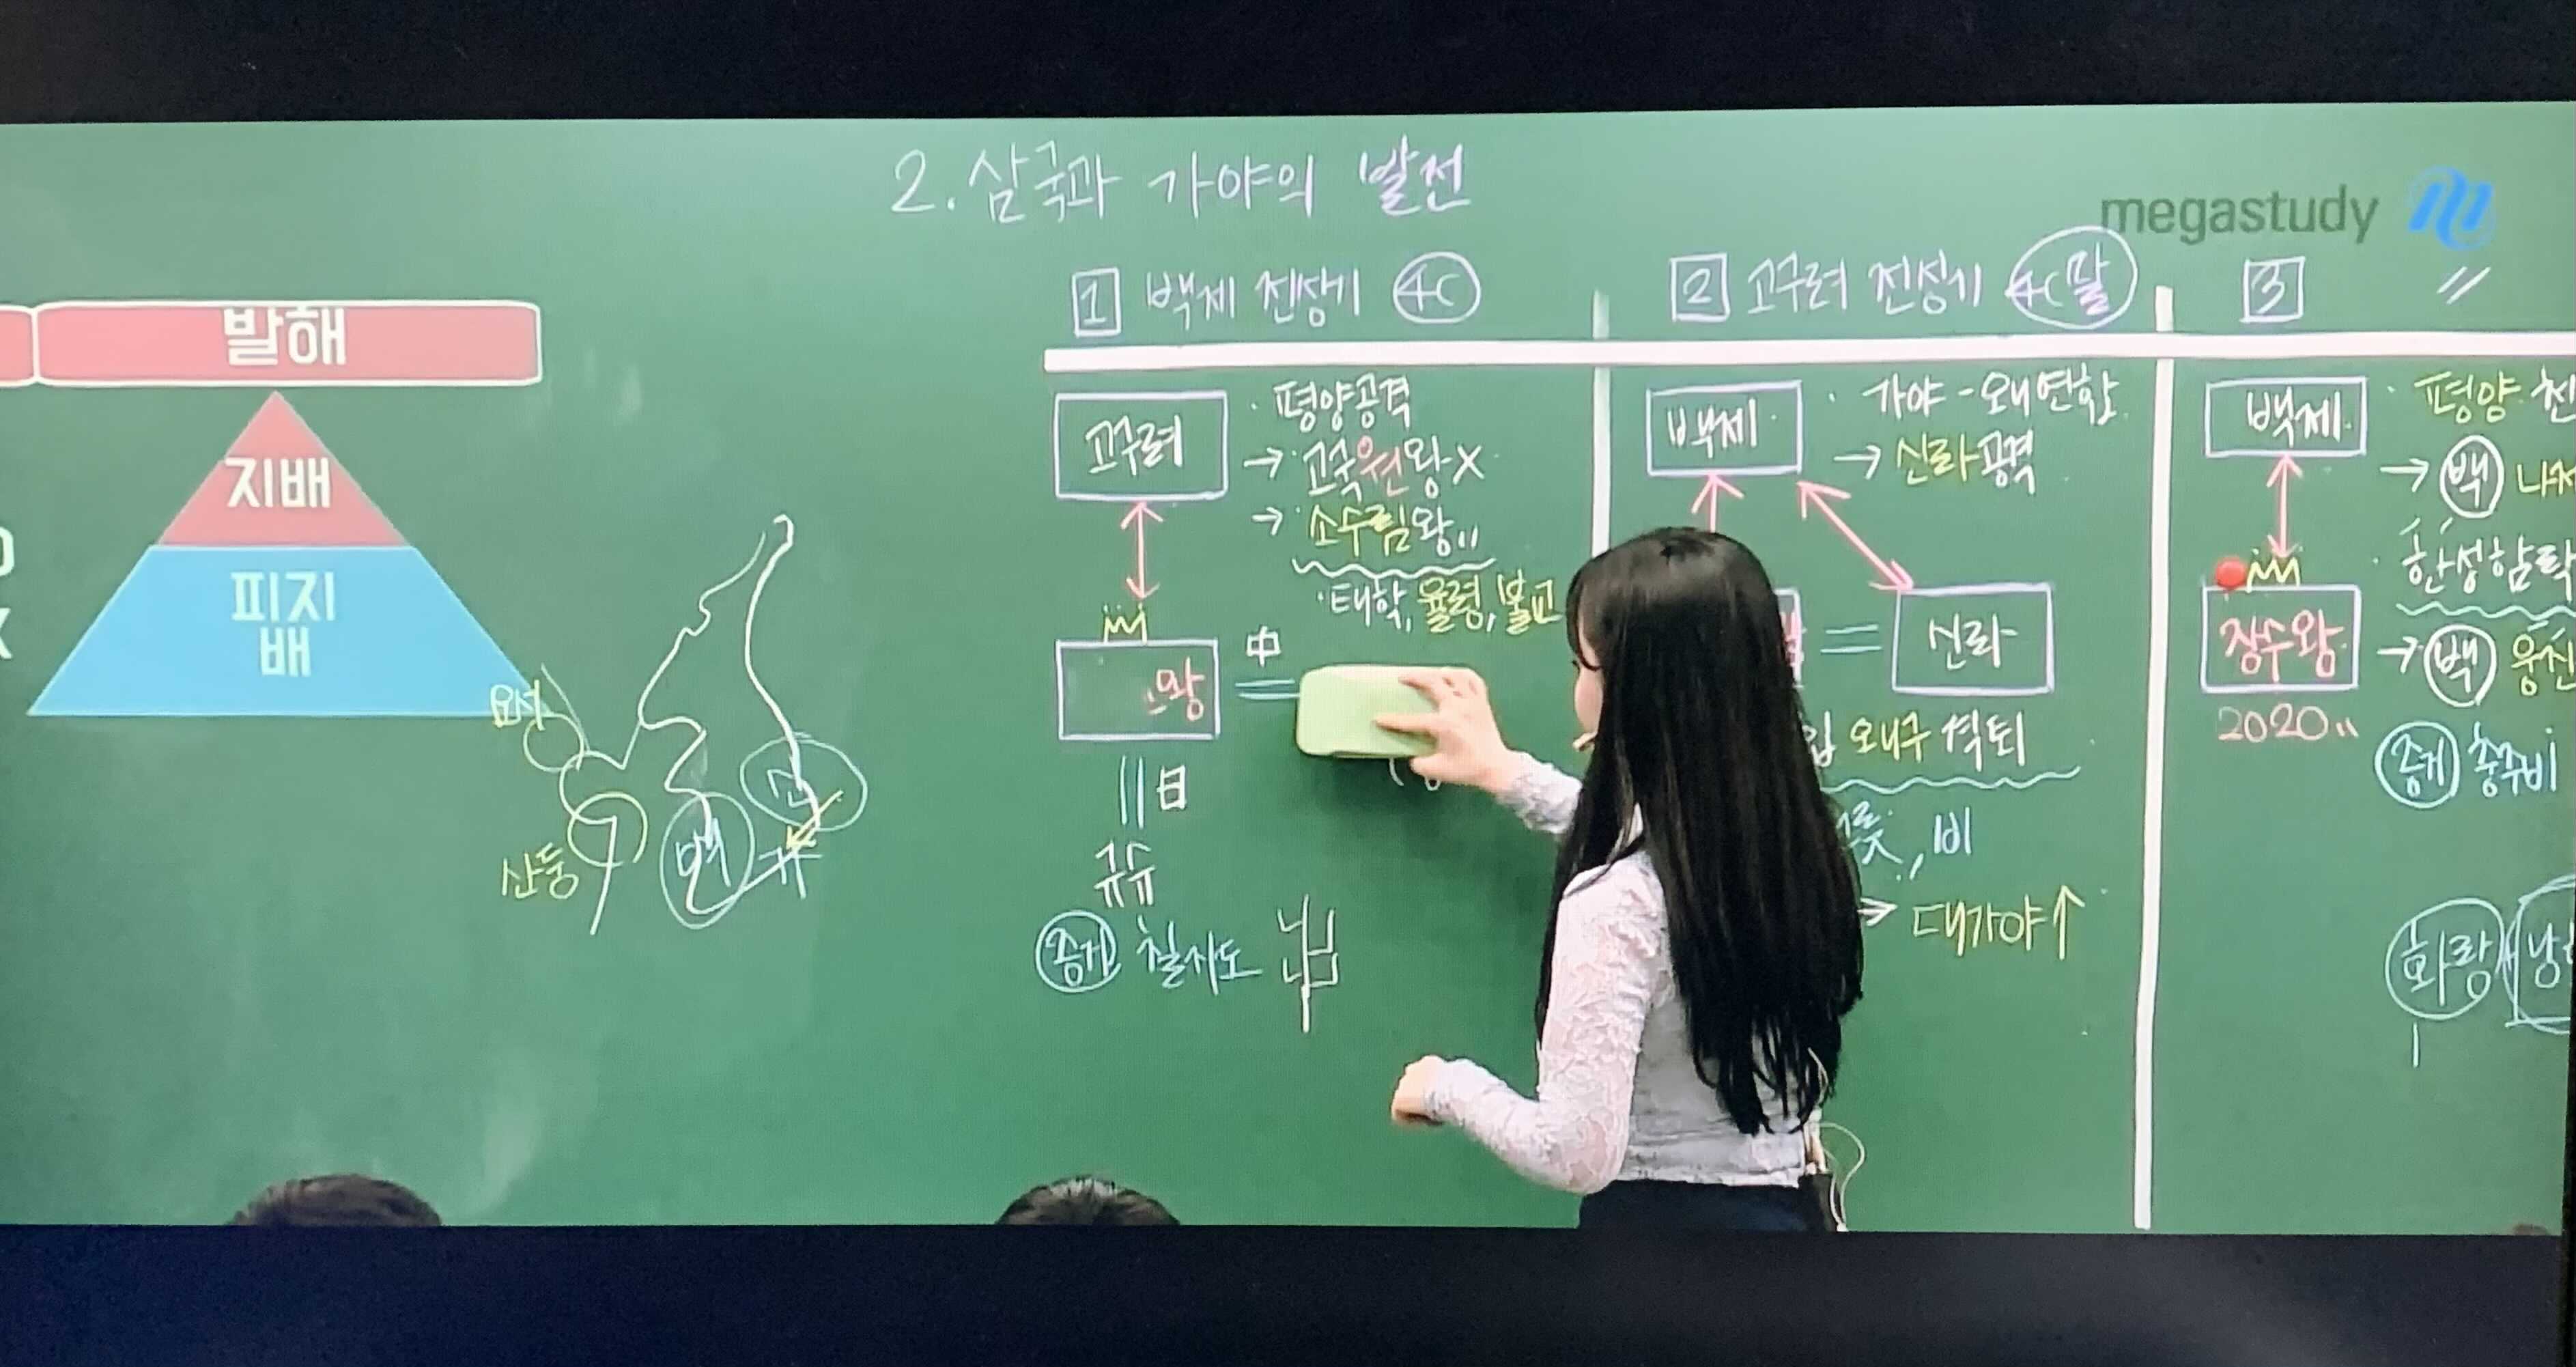 2. 삼국과 가야의 발전
megastudy
발해
지배
피지
배
요서
산둥
백
가
신
1 백제 전성기 4C
고구려
· 평양공격
→ 고국원왕 X
→ 소수림왕〃
· 태학, 율령, 불교
왕
中
日
규슈
증거 칠지도
2 고구려 전성기 4C말
백제
· 가야-왜연합
→ 신라공격
신라
입 왜구 격퇴
릇, 비
→ 대가야↑
3 〃
백제
· 평양 천
→ 백 나제
· 한성함락
장수왕
→ 백 웅진
2020〃
증거 충주비
화랑